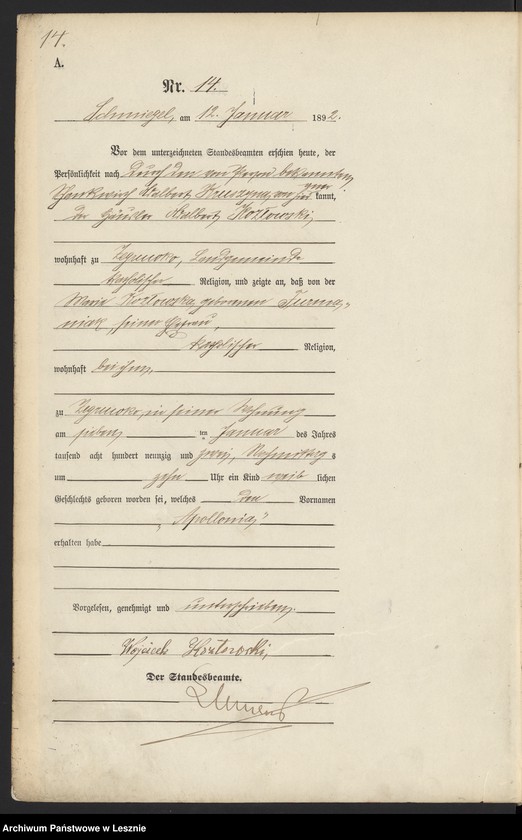 14.
A.
Nr. 14.
Schmiegel, am 12. Januar 1892.
Vor dem unterzeichneten Standesbeamten erschien heute, der
Persönlichkeit nach durch den von Person bekannten
Schankwirth Valbert kannt,
der Häusler Valbert Kozłowski,
wohnhaft zu Zegrowko, Landgemeinde
katholischer Religion, und zeigte an, daß von der
Maria Kozłowska geborenen Furma-
niak, seiner Ehefrau,
katholischer Religion,
wohnhaft bei ihm,
zu Zegrowko, in seiner Wohnung
am sieben ten Januar des Jahres
tausend acht hundert neunzig und zwei, Nachmittags
um zehn Uhr ein Kind weib lichen
Geschlechts geboren worden sei, welches den Vornamen
„Apollonia“
erhalten habe
Vorgelesen, genehmigt und unterschrieben.
Wojciech Kozłowski,
Der Standesbeamte.
Archiwum Państwowe w Lesznie